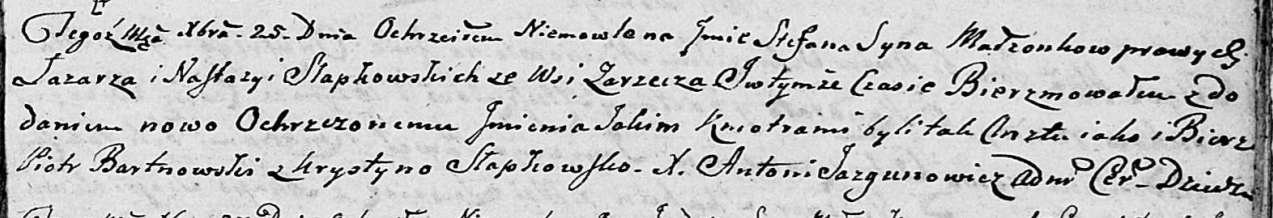 Tegoż Mca Xbra. 25. Dnia Ochrzciłem Niemowle na Jmie Stefana Syna Małżonkow prawych
Łazarza i Nastazyi Słapkowskich ze Wsi Zarzecza Jwtymże Czasie Bierzmowałem z do
daniem nowo Ochrzczonemu Jmienia Jakim Kmotrami byli tak Chrztu iako i Bierz
Piotr Bartnowski z Krystyno Słapkowsko. X. Antoni Jazgunowicz Admr Cer.